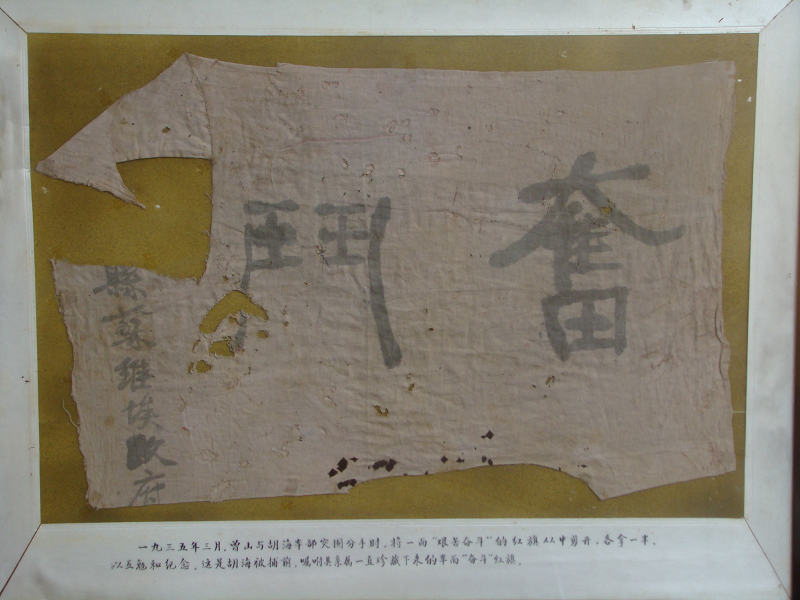 奮鬥
縣蘇維埃政府
一九三五年三月,曾山与胡海率部突围分手时,将一面“艰苦奋斗”的红旗从中剪开,各拿一半,
以互勉和纪念,这是胡海被捕前,嘱咐其亲属一直珍藏下来的半面“奋斗”红旗。